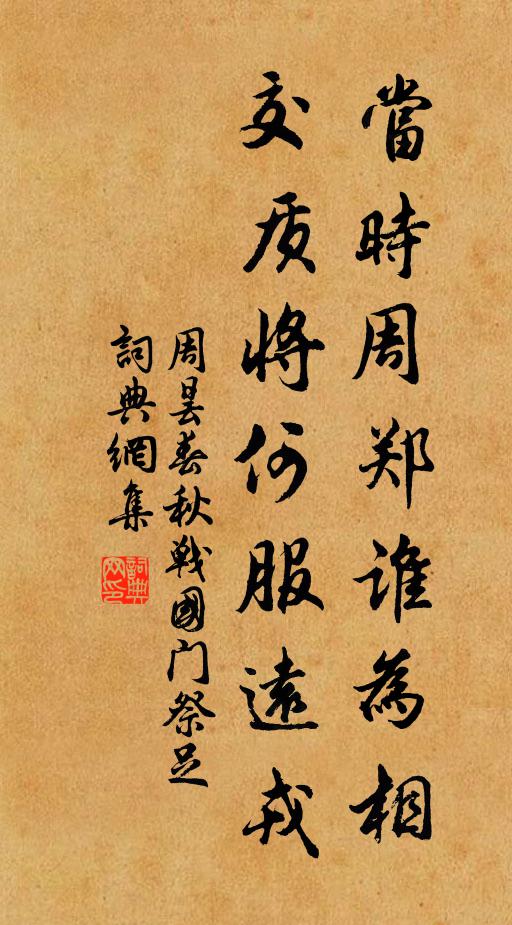 當時周郑谁為相
交质將何服遠戎
周昙春秋戰國门祭足
詞典網集
詞典网印